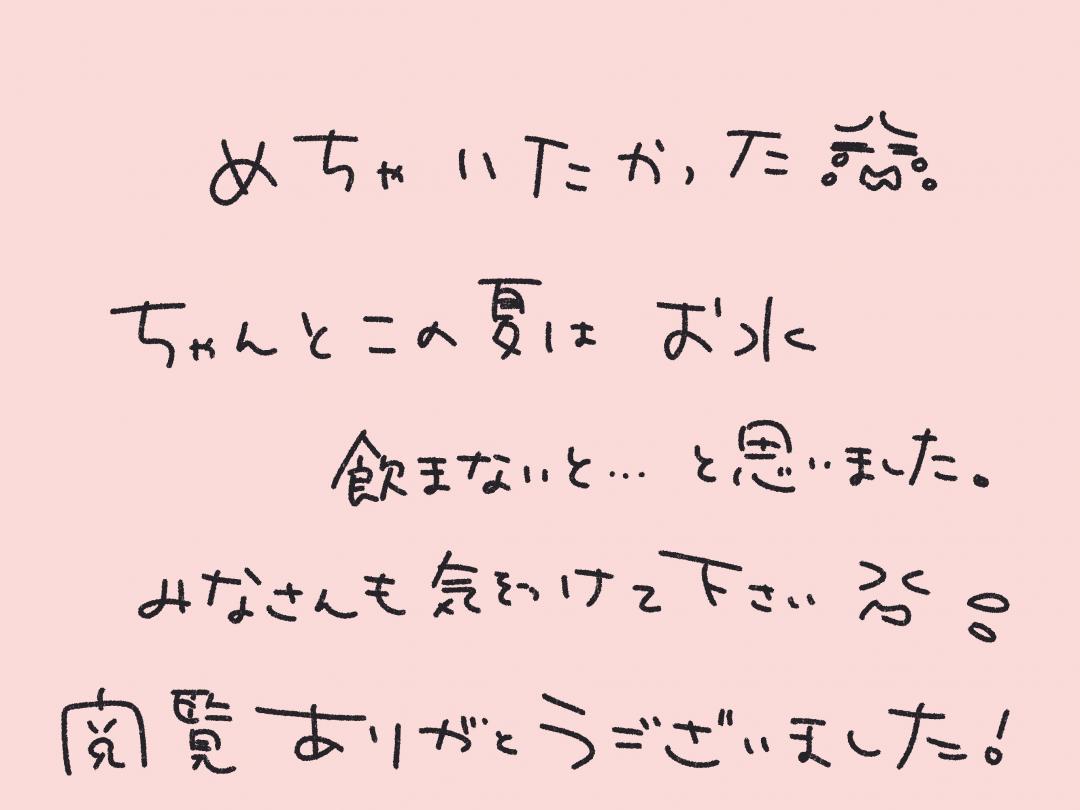 めちゃいたかった
ちゃんとこの夏はお水
飲まないと… と思いました。
みなさんも気をつけて下さい
閲覧ありがとうございました!